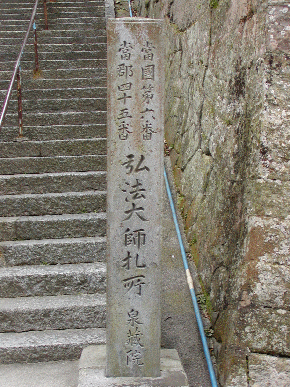 當國第六番
當郡四十五番
弘法大師札所
泉蔵院